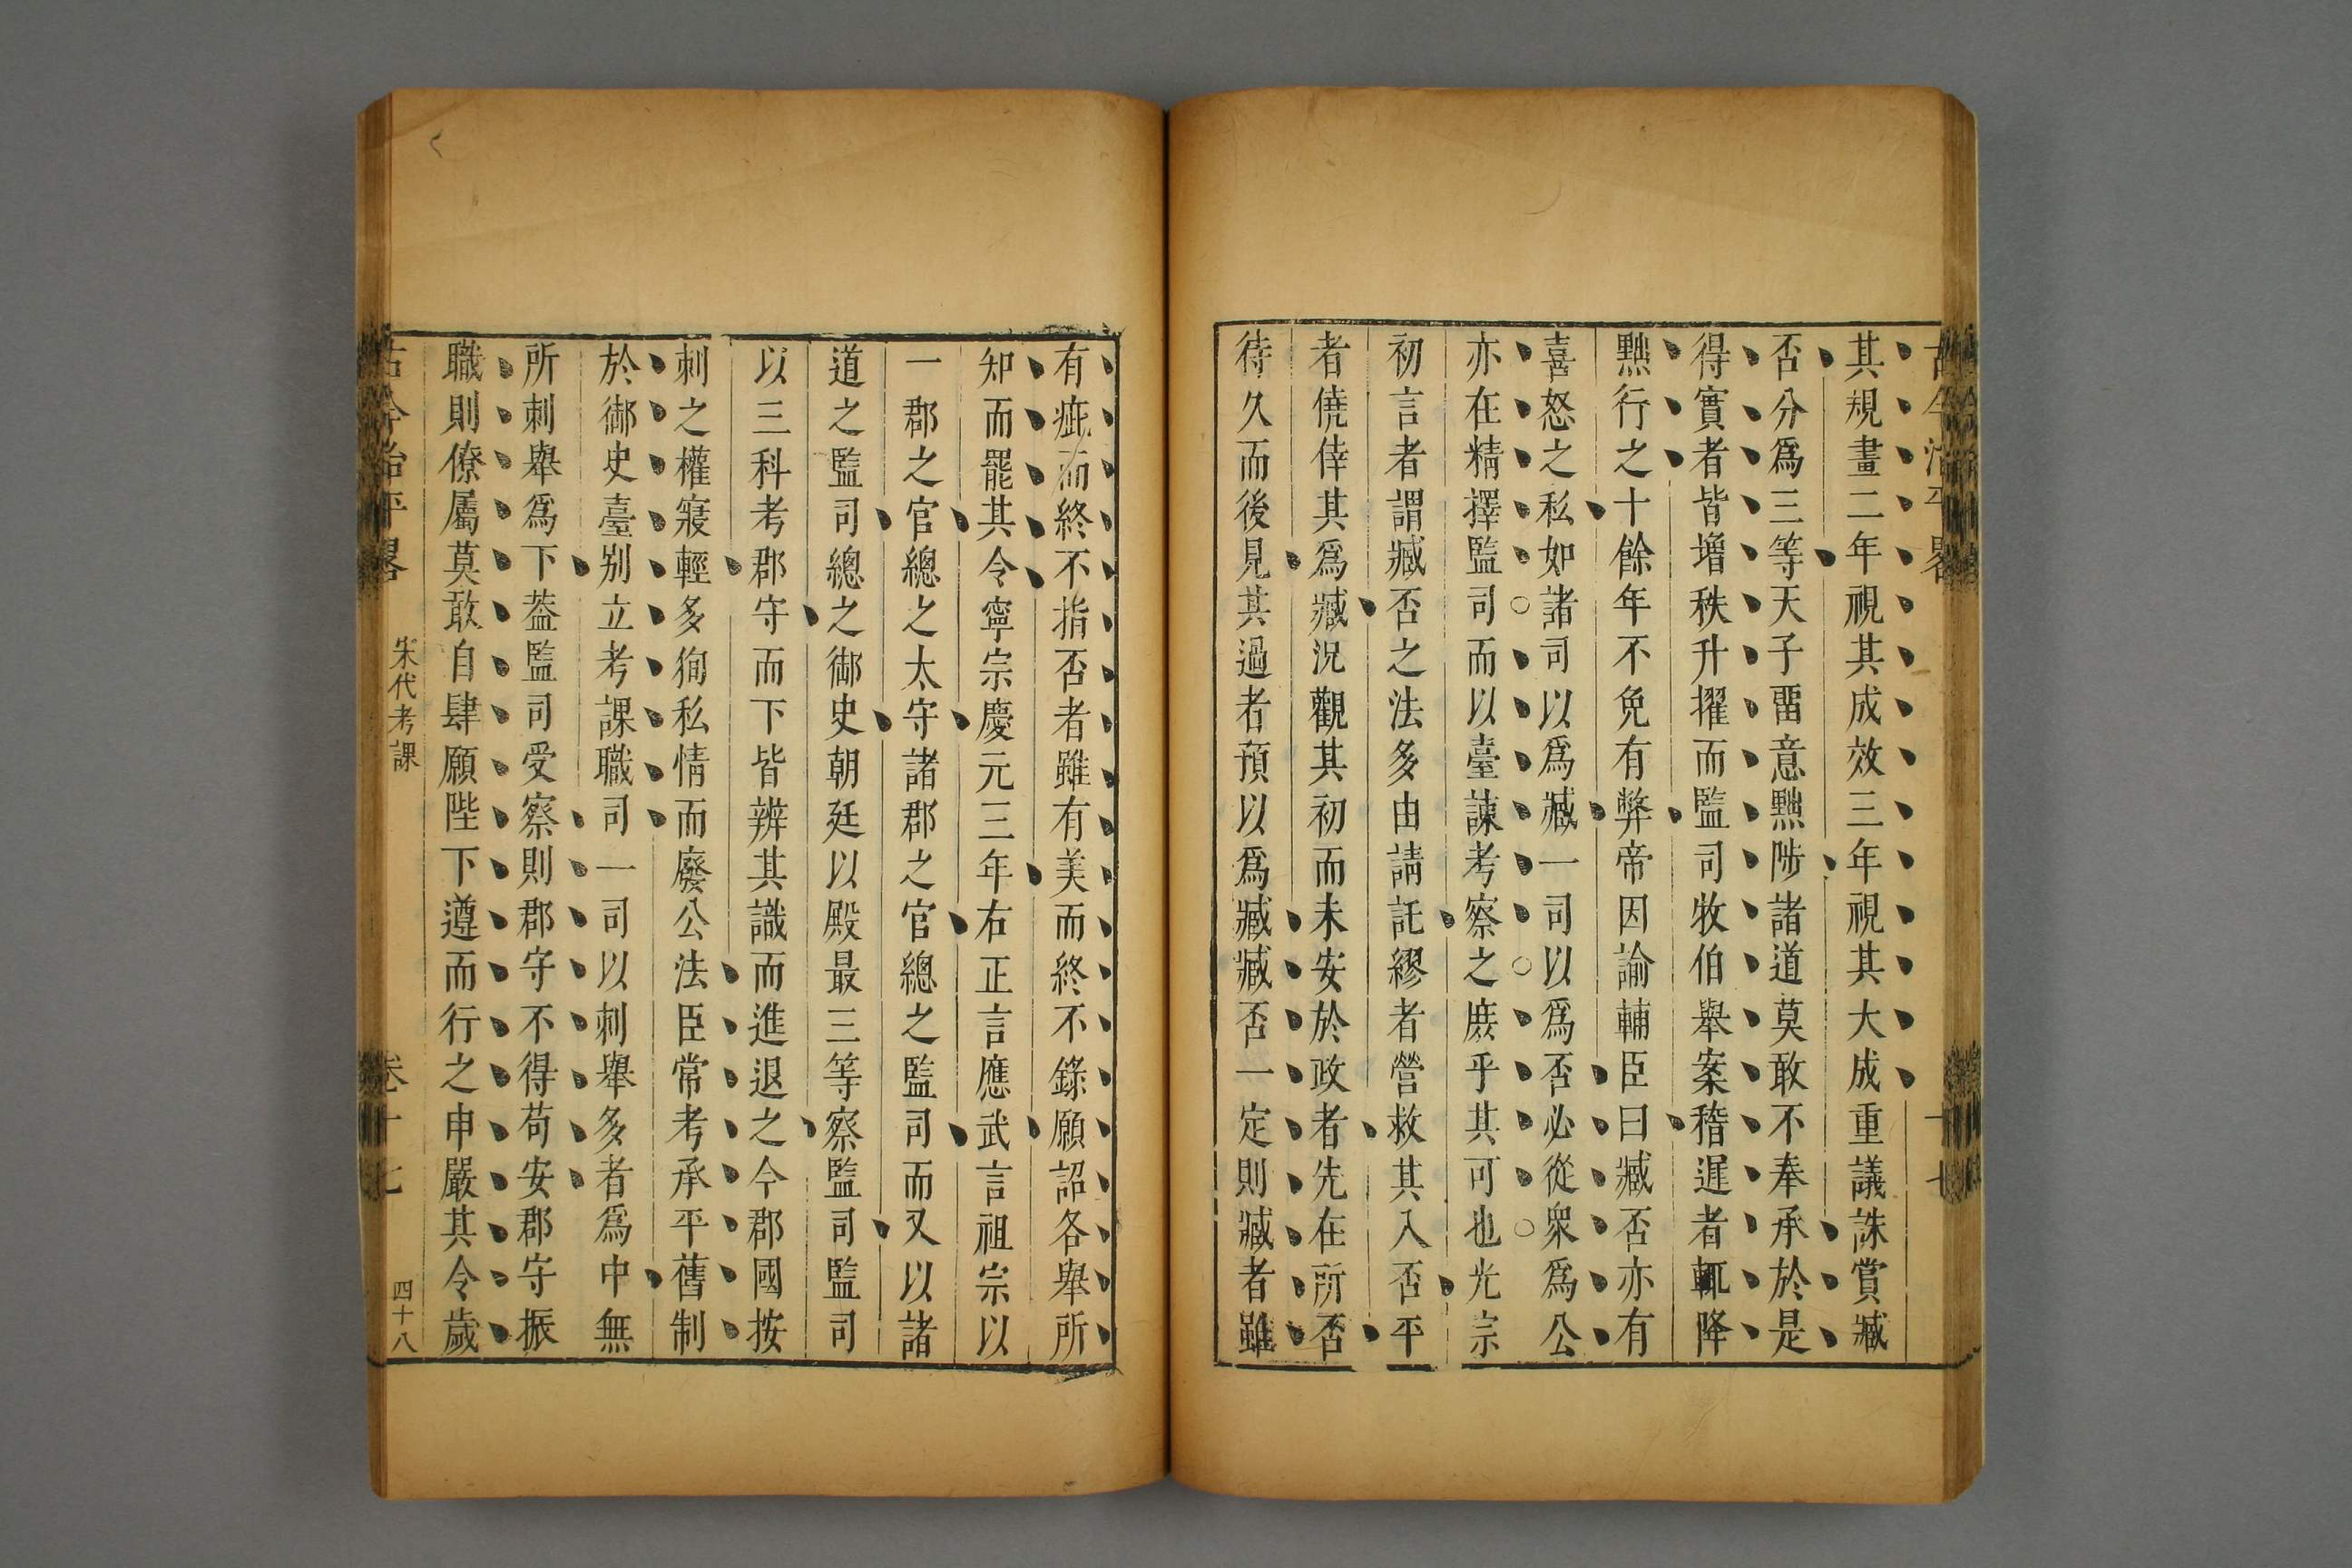 其規畫二年視其成效三年視其大成重議誅賞臧
否分爲三等天子畱意黜陟諸道莫敢不奉承於是
得實者皆增秩升擢而監司牧伯舉案稽遲者輒降
黜行之十餘年不免有弊帝因諭輔臣曰臧否亦有
喜怒之私如諸司以爲臧一司以爲否必從衆爲公
亦在精擇監司而以臺諫考察之庶乎其可也光宗
初言者謂臧否之法多由請託繆者營救其入否平
者僥倖其爲臧況觀其初而未安於政者先在所否
待久而後見其過者預以爲臧臧否一定則臧者雖
有疵而終不指否者雖有美而終不錄願詔各舉所
知而罷其令寧宗慶元三年右正言應武言祖宗以
一郡之官總之太守諸郡之官總之監司而又以諸
道之監司總之御史朝廷以殿最三等察監司監司
以三科考郡守而下皆辨其識而進退之今郡國按
刺之權寢輕多狥私情而廢公法臣常考承平舊制
於御史臺别立考課職司一司以刺舉多者爲中無
所刺舉爲下葢監司受察則郡守不得苟安郡守振
職則僚屬莫敢自肆願陛下遵而行之申嚴其令歲
古今治平畧
宋代考課
卷十七
四十八